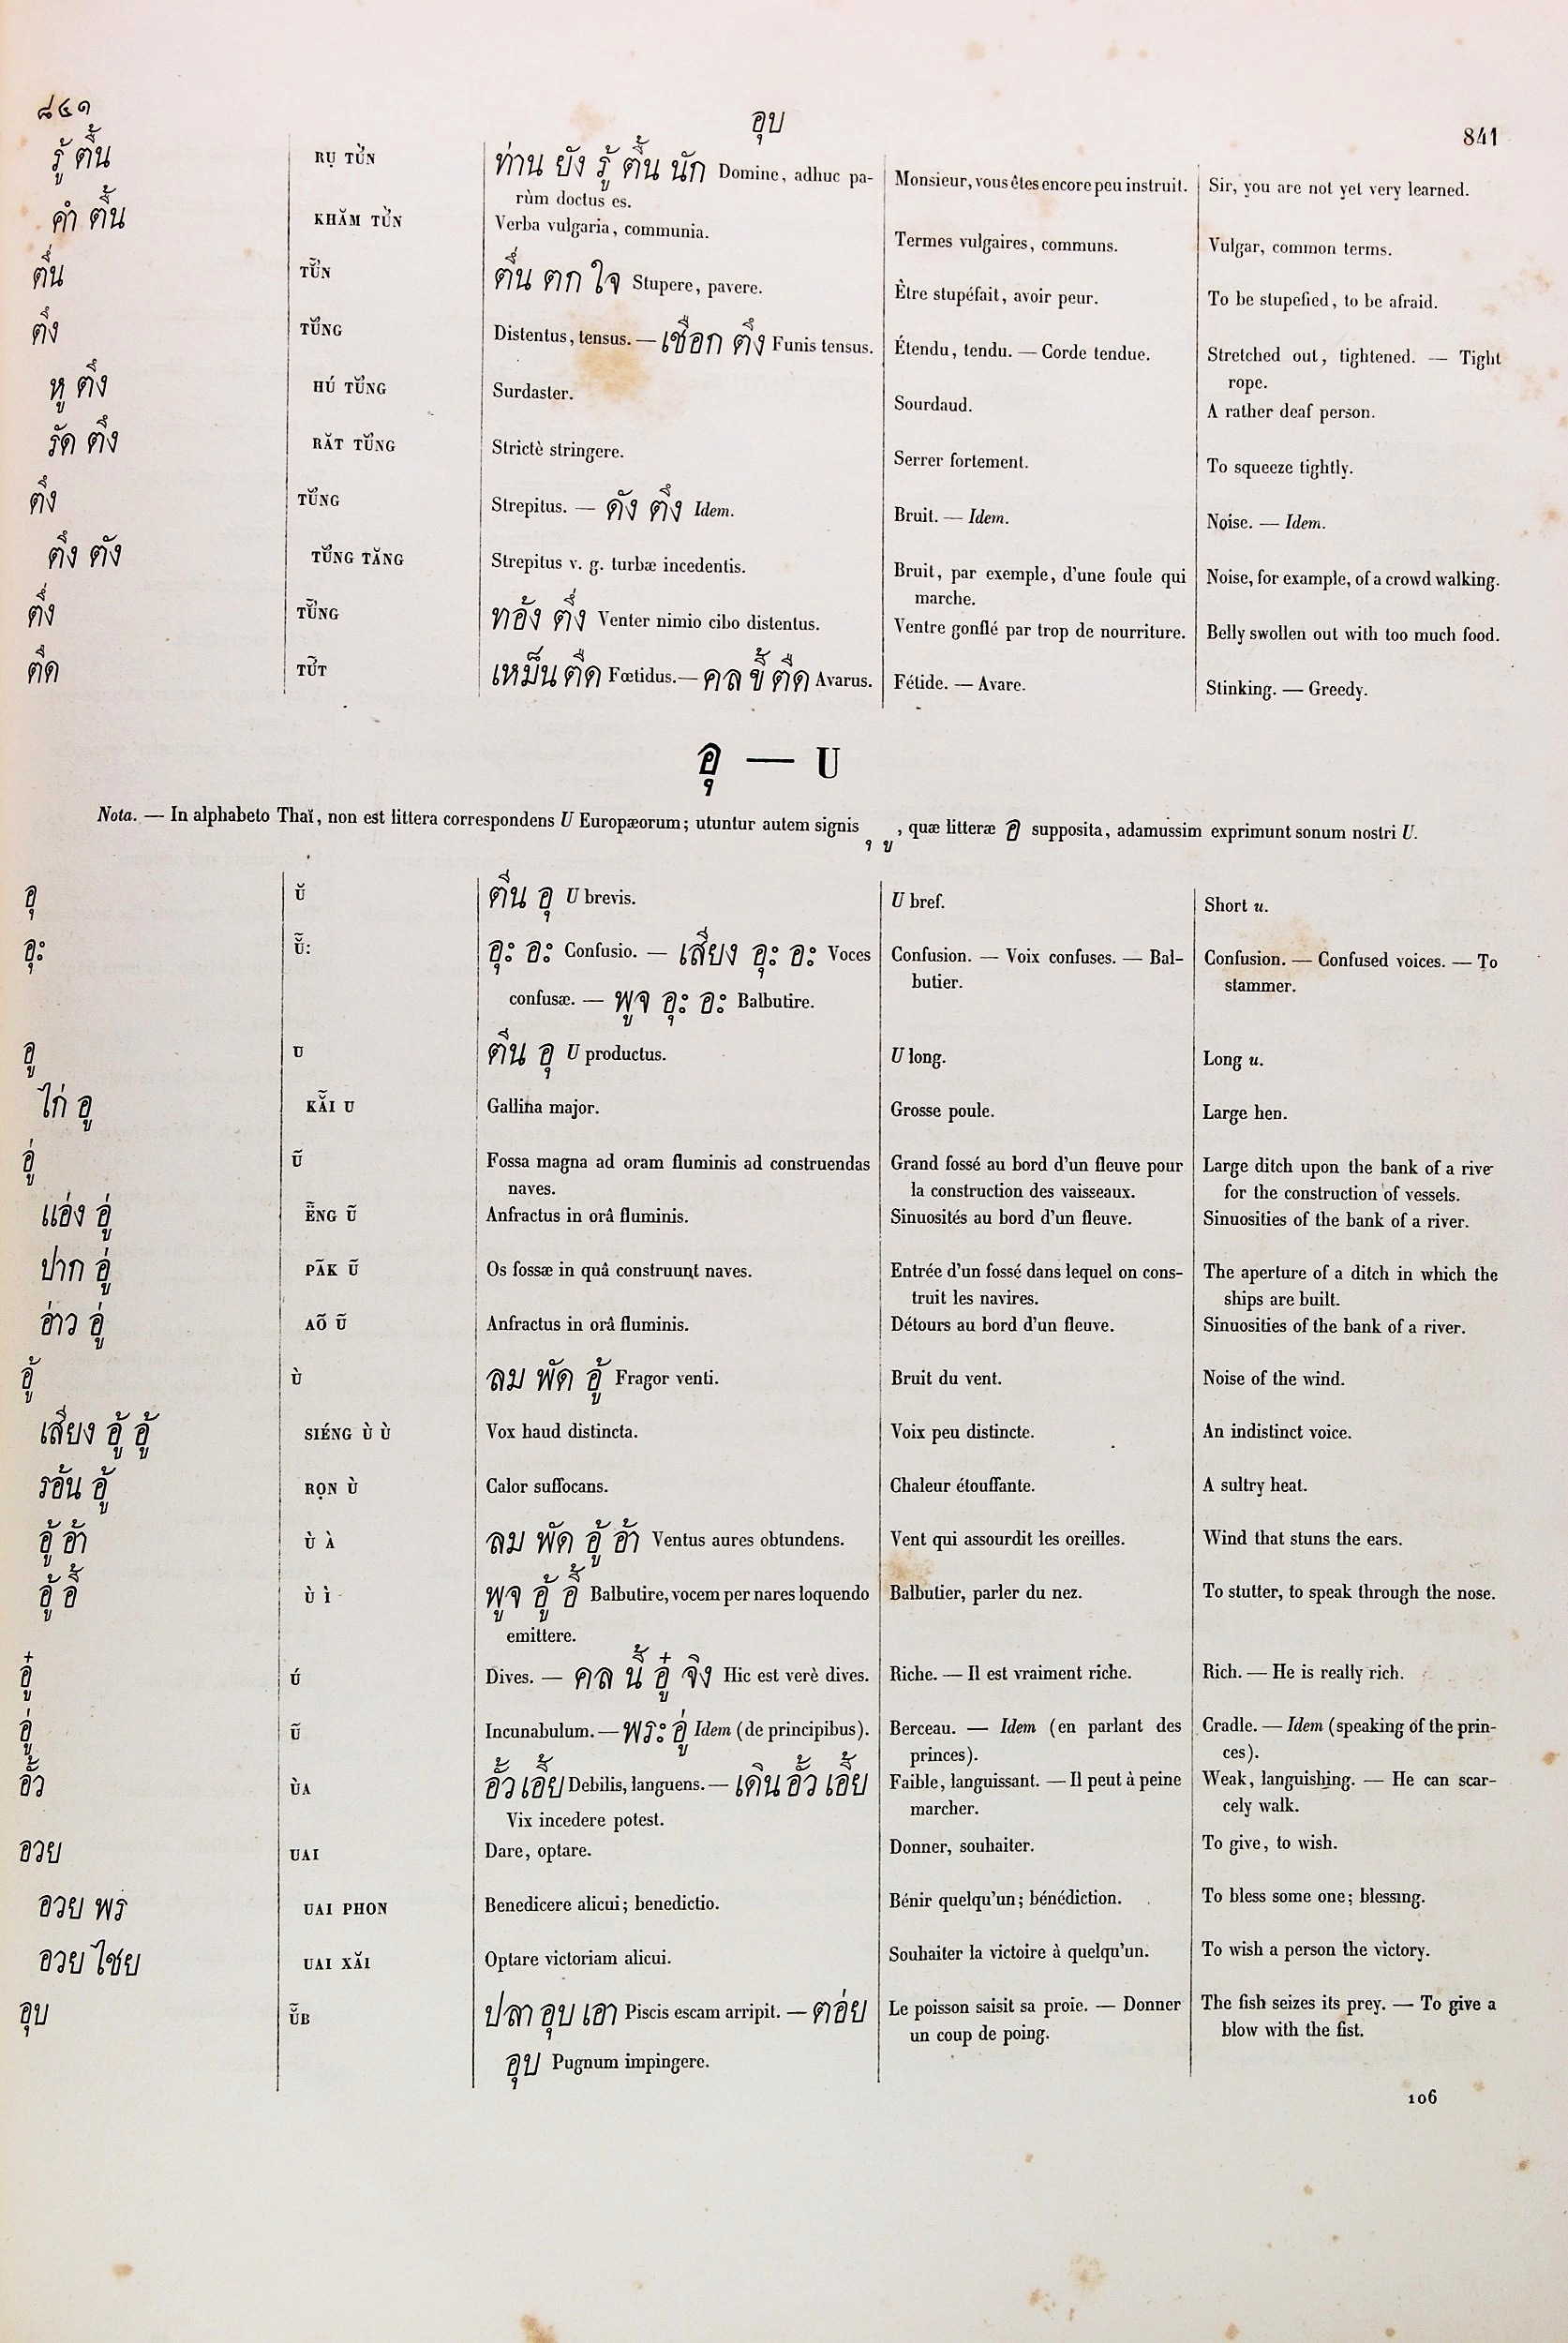 ๘๔๑ อุบ 841
รู้ ตื้น RỤ TỪN ท่าน ยัง รู้ ตื้น นัก Domine, adhuc pa- Monsieur, vous êtes encore peu instruit. Sir, you are not yet very learned.
rùm doctus es.
คำ ตื้น KHĂM TỪN Verba vulgaria, communia. Termes vulgaires, communs. Vulgar, common terms.
ตื่น ตื่น ตก ใจ Stupere, pavere. Être stupéfait, avoir peur. To be stupefied, to be afraid.
ตึง Distentus, tensus. — เชือก ตึง Funis tensus. Étendu, tendu. — Corde tendue. Stretched out, tightened. — Tight
rope.
หู ตึง Surdaster. Sourdaud. A rather deaf person.
รัด ตึง Strictè stringere. Serrer fortement. To squeeze tightly.
ตึง Strepitus. — ดัง ตึง Idem. Bruit. — Idem. Noise. — Idem.
ตึง ตัง Strepitus v. g. turbæ incedentis. Bruit, par exemple, d'une foule qui Noise, for example, of a crowd walking.
marche.
ตึ่ง ทอ้ง ตึ่ง Venter nimio cibo distentus. Ventre gonflé par trop de nourriture. Belly swollen out with too much food.
ตืด เหม็น ตืด Fœtidus. — คล ขี้ ตืด Avarus. Fétide. — Avare. Stinking. — Greedy.
อุ — U
Nota. — In alphabeto Thaĭ, non est littera correspondens U Europæorum; utuntur autem signis ุ ู, quæ litteræ อ supposita, adamussim exprimunt sonum nostri U.
อุ Ŭ ตีน อุ U brevis. U bref. Short u.
อุะ อุะ อะ Confusio. — เสียง อุะ อะ Voces Confusion. — Voix confuses. — Bal- Confusion. — Confused voices. — To
confusæ. — พูจ อุะ อะ Balbutire. butier. stammer.
อู U ตีน อุ U productus. U long. Long u.
ไก่ อู Gallina major. Grosse poule. Large hen.
อู่ Ũ Fossa magna ad oram fluminis ad construendas Grand fossé au bord d'un fleuve pour Large ditch upon the bank of a rive
naves. la construction des vaisseaux. for the construction of vessels.
แอ่ง อู่ Anfractus in orâ fluminis. Sinuosités au bord d'un fleuve. Sinuosities of the bank of a river.
ปาก อู่ PÃK Ũ Os fossæ in quâ construunt naves. Entrée d'un fossé dans lequel on cons- The aperture of a ditch in which the
truit les navires. ships are built.
อ่าว อู่ AÕ Ũ Anfractus in orâ fluminis. Détours au bord d'un fleuve. Sinuosities of the bank of a river.
อู้ Ù ลม พัด อู้ Fragor venti. Bruit du vent. Noise of the wind.
เสียง อู้ อู้ SIÉNG Ù Ù Vox haud distincta. Voix peu distincte. An indistinct voice.
รอ้น อู้ RỌN Ù Calor suffocans. Chaleur étouffante. A sultry heat.
อู้ อ้า Ù À ลม พัด อู้ อ้า Ventus aures obtundens. Vent qui assourdit les oreilles. Wind that stuns the ears.
อู้ อี้ Ù Ì พูจ อู้ อี้ Balbutire, vocem per nares loquendo Balbutier, parler du nez. To stutter, to speak through the nose.
emittere.
อู๋ Ú Dives. — คล นี้ อู๋ จิง Hic est verè dives. Riche. — Il est vraiment riche. Rich. — He is really rich.
อู่ Ũ Incunabulum. — พระ อู่ Idem (de principibus). Berceau. — Idem (en parlant des Cradle. — Idem (speaking of the prin-
princes). ces).
อั้ว ÙA อั้ว เอี้ย Debilis, languens. — เดิน อั้ว เอี้ย Faible, languissant. — Il peut à peine Weak, languishing. — He can scar-
Vix incedere potest. marcher. cely walk.
อวย UAI Dare, optare. Donner, souhaiter. To give, to wish.
อวย พร UAI PHON Benedicere alicui; benedictio. Bénir quelqu'un; bénédiction. To bless some one; blessing.
อวย ไชย UAI XĂI Optare victoriam alicui. Souhaiter la victoire à quelqu'un. To wish a person the victory.
อุบ ปลา อุบ เอา Piscis escam arripit. — ตอ่ย Le poisson saisit sa proie. — Donner The fish seizes its prey. — To give a
อุบ Pugnum impingere. un coup de poing. blow with the fist.
106